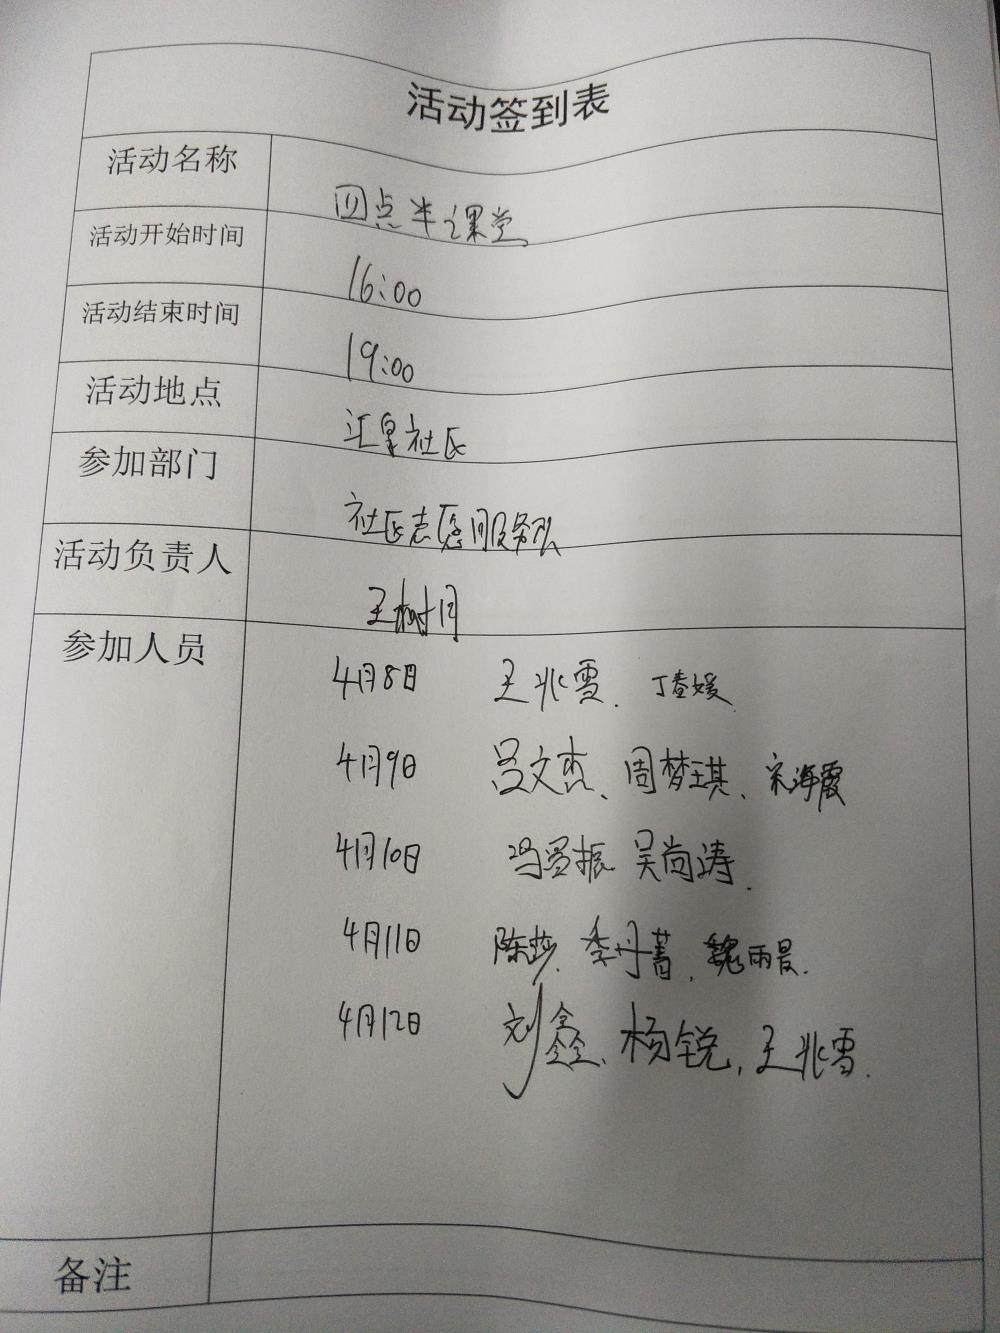 活动签到表
活动名称 四点半课堂
活动开始时间 16:00
活动结束时间 19:00
活动地点 汇皇社区
参加部门 社区志愿服务队
活动负责人 王树月
参加人员 4月8日 王兆雪、丁媛
4月9日 吕文杰、周梦琪、宋海霞
4月10日 冯振 吴尚涛
4月11日 陈莎、李丹菁、魏雨晨
4月12日 刘鑫、杨锐、王兆雪
备注